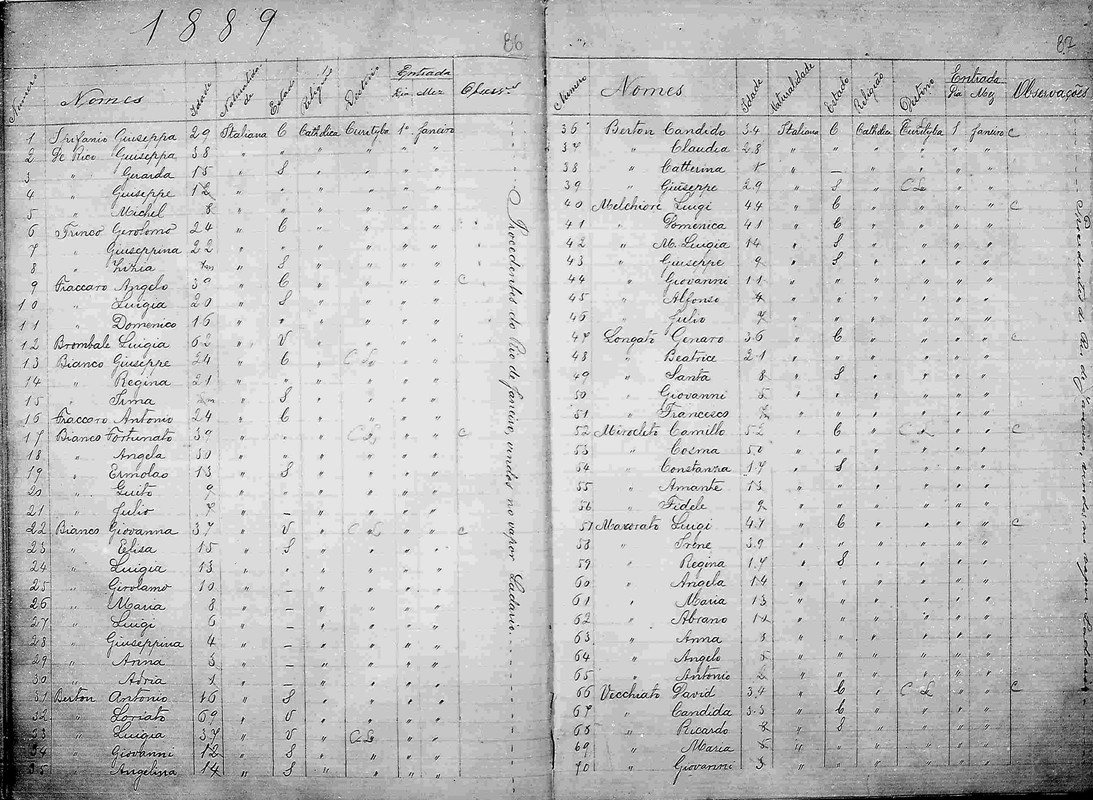 1889
86
Numero Nomes Idade Naturalidade Estado Religião Destino Entrada Dia Mez Observ
1 Giuseppa 29 Italiana C Catholica Curityba 1º Janeiro
2 De Rico Giuseppa 38 " " " " " "
3 " 15 " S " " " "
4 " Giuseppe 12 " " " " " "
5 " Michel 8 " " " " " "
6 Trinco Girolomo 24 " C " " " "
7 " Giuseppina 22 " " " " " "
8 " " S " " " "
9 Fraccaro Angelo 39 " C " " " " C
10 " Luigia 20 " S " " " "
11 " Domenico 16 " " " " " "
12 Brombale Luigia 62 " V " " " "
13 Bianco Giuseppe 24 " C " C L " "
14 " Regina 21 " " " " " "
15 " Irma " S " " " "
16 Fraccaro Antonio 24 " C " " " "
17 Bianco Fortunato 39 " " " C L " " C
18 " Angela 30 " " " " " "
19 " Ermolao 13 " S " " " "
20 " Guito 9 " " " " " "
21 " Julio 7 " _ " " " "
22 Bianco Giovanna 37 " V " C L " " C
23 " Elisa 15 " S " " " "
24 " Luigia 13 " " " " " "
25 " Girolamo 10 " _ " " " "
26 " Maria 8 " _ " " " "
27 " Luigi 6 " _ " " " "
28 " Giuseppina 4 " _ " " " "
29 " Anna 3 " _ " " " "
30 " Adria 1 " _ " " " "
31 Berton Antonio 46 " S " " " "
32 " Loriato 69 " V " " " "
33 " Luigia 37 " V " C L " "
34 " Giovanni 12 " S " " " "
35 " Angelina 14 " S " " " "
Procedentes do Rio de Janeiro, vindos no vapor Ladario.
87
Numero Nomes Idade Naturalidade Estado Religião Destino Entrada Dia Mez Observações
36 Berton Candido 34 Italiana C Catholica Curityba 1 Janeiro C
37 " Claudia 28 " " " " " "
38 " Catterina 1 " _ " " " "
39 " Giuseppe 29 " S " C L " "
40 Melchiore Luigi 44 " C " " " " C
41 " Domenica 41 " C " " " "
42 " M. Luigia 14 " S " " " "
43 " Giuseppe 9 " S " " " "
44 " Giovanni 11 " " " " " "
45 " Alfonso 4 " " " " " "
46 " Julio " " " " " "
47 Longato Genaro 36 " C " " " " C
48 " Beatrice 21 " " " " " "
49 " Santa 8 " S " " " "
50 " Giovanni 5 " " " " " "
51 " Francesco " " " " " "
52 Mirocleto Camillo 52 " C " C L " " C
53 " Cosma 50 " " " " " "
54 " Constanza 17 " S " " " "
55 " Amante 13 " " " " " "
56 " Fidele 9 " " " " " "
57 Luigi 47 " C " " " " C
58 " Irene 39 " " " " " "
59 " Regina 17 " S " " " "
60 " Angela 14 " " " " " "
61 " Maria 13 " " " " " "
62 " Abrano " " " " " "
63 " Anna " " " " " "
64 " Angelo 5 " " " " " "
65 " Antonio 2 " " " " " "
66 Vecchiato David 34 " C " C L " " C
67 " Candida 33 " C " " " "
68 " Ricardo " S " " " "
69 " Maria " " " " " "
70 " Giovanni 3 " " " " " "
Procedentes do Rio de Janeiro, vindos no vapor Ladario